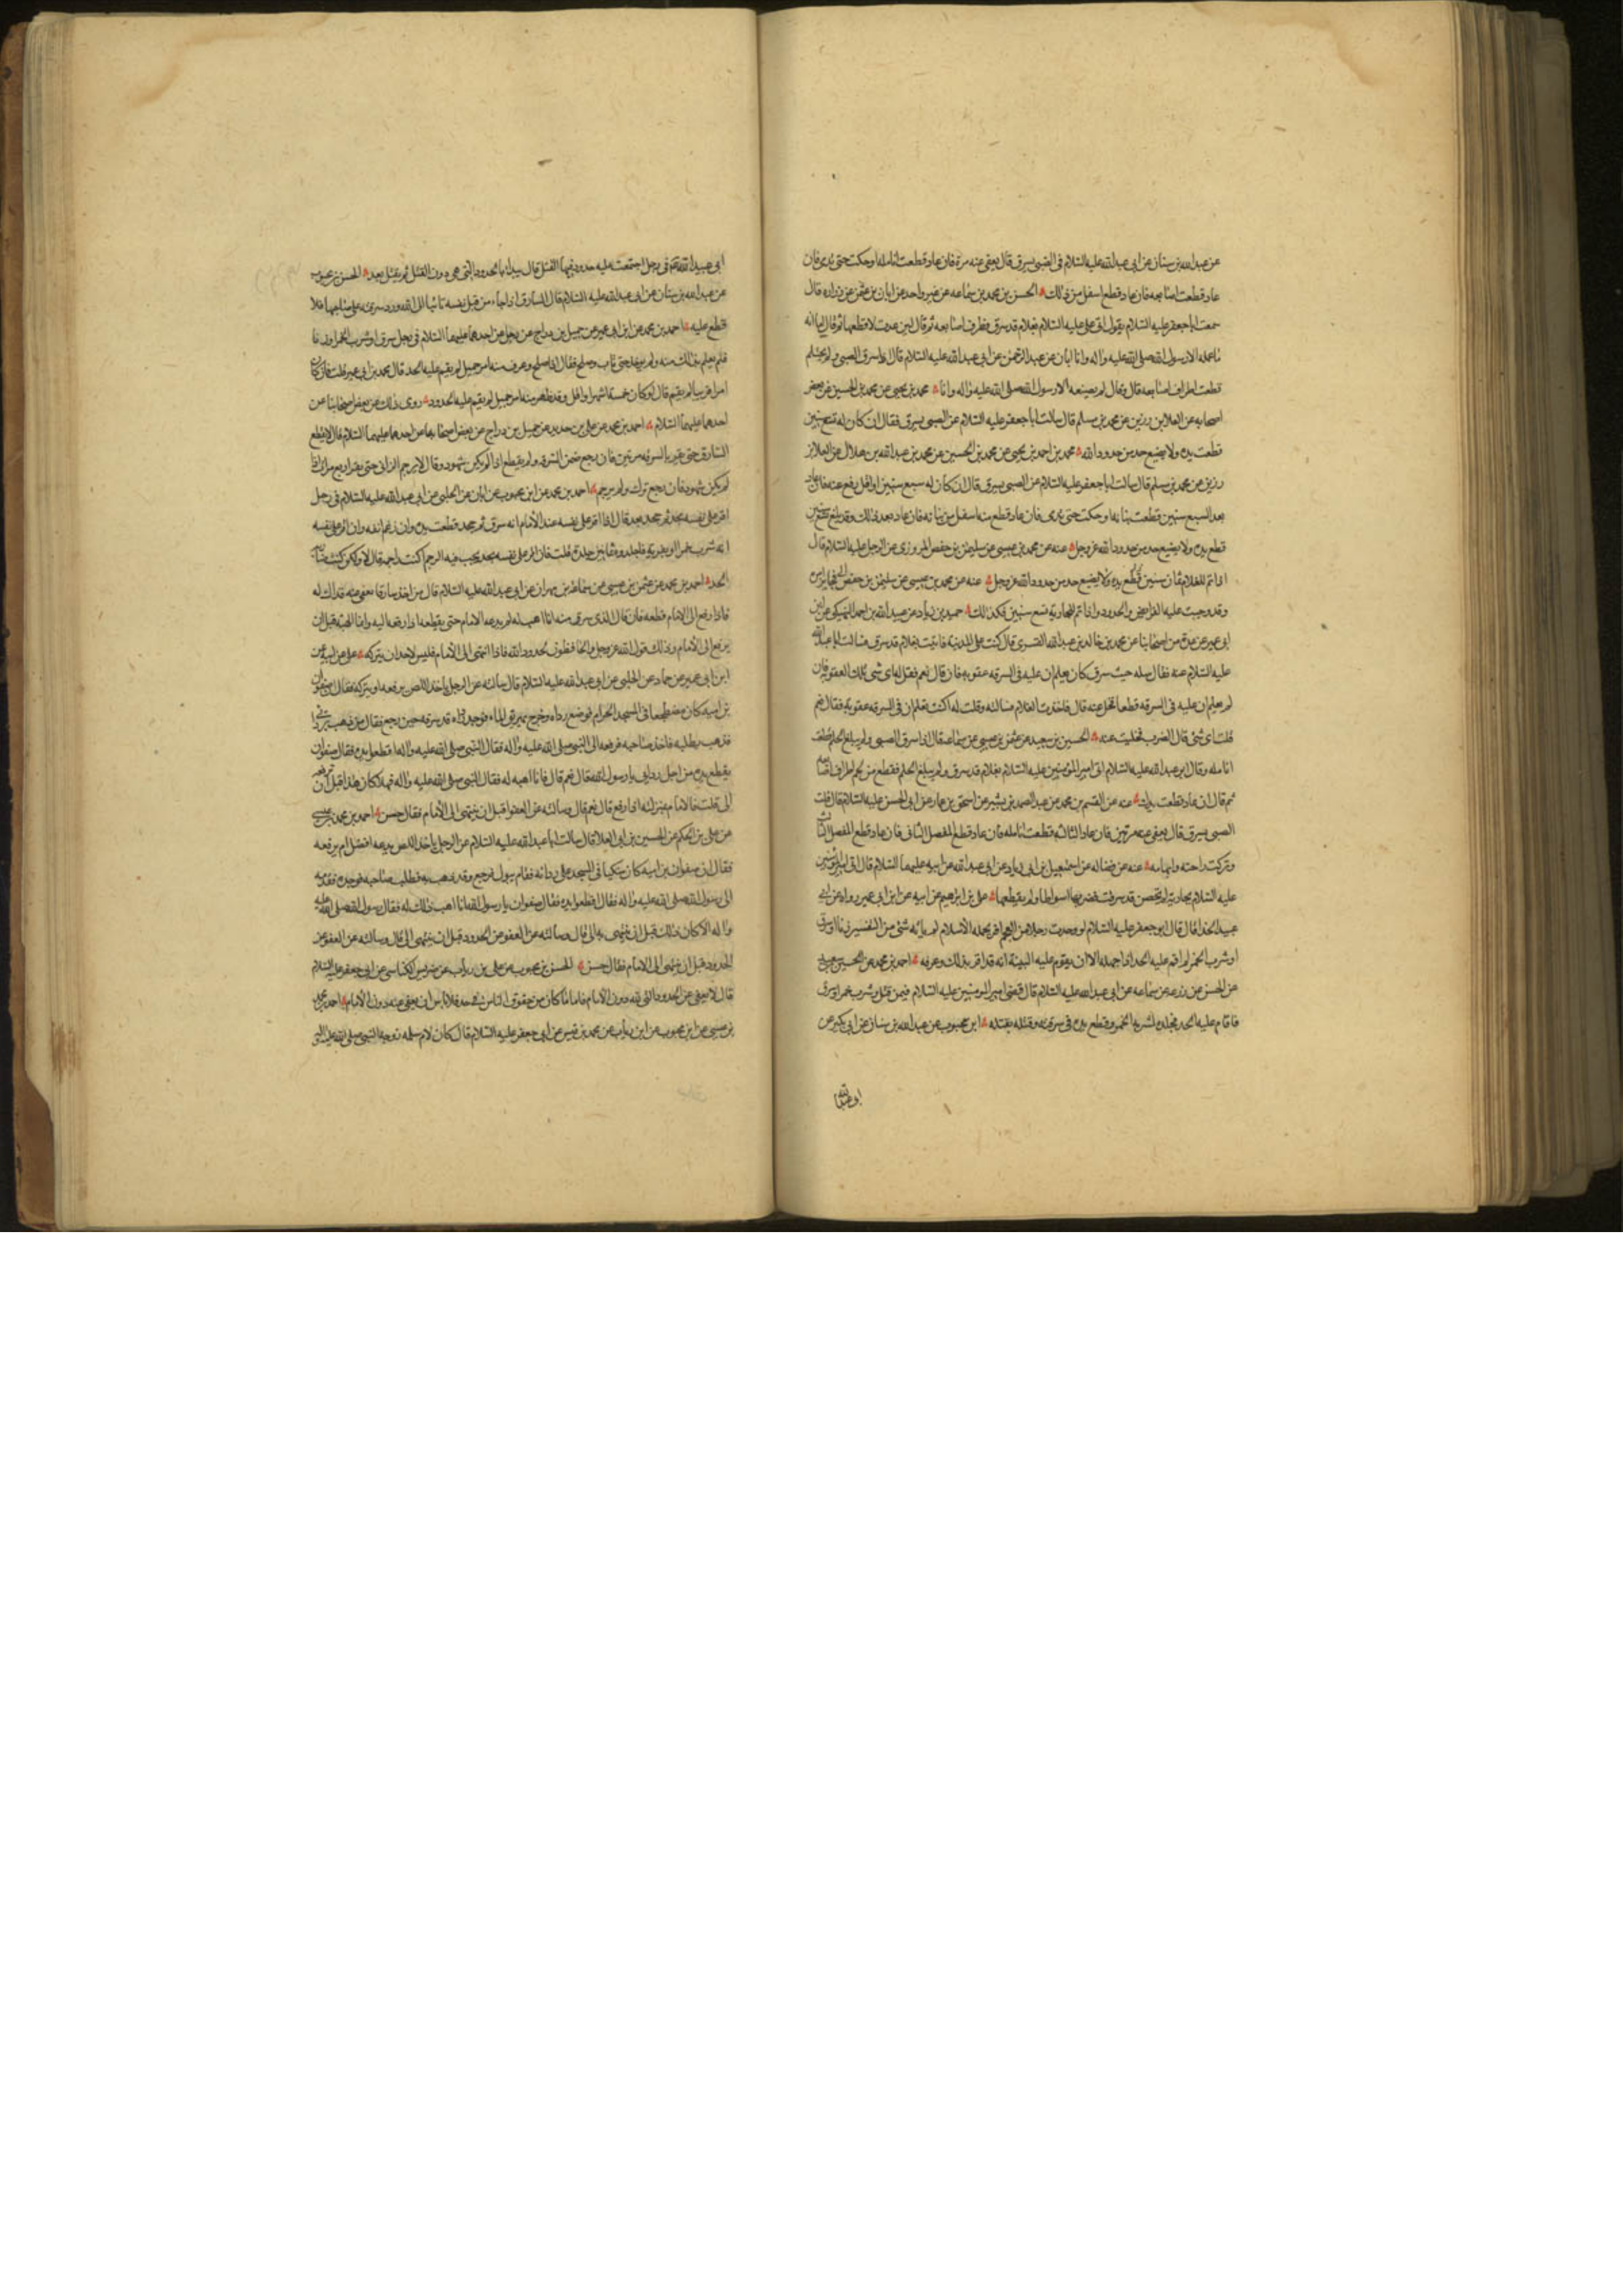 عن عبد الله بن سنان عن ابى عبد الله عليه السلام فى الصبى يسرق قال يعفى عنه مرة فان عاد قطعت انامله او حكت حتى تدمى فان
عاد قطعت اصابعه فان عاد قطع اسفل من ذلك الحسن بن محمد بن سماعه عن غير واحد عن ابان بن عثمن عن زراره قال
سمعت ابا جعفر عليه السلام يقول اتى على عليه السلام بغلام قد سرق فطرف اصابعه ثم قال لئن عدت لاقطعنها ثم قال اما انه
ما عمله الا رسول الله صلى الله عليه واله وانا ابان عن عبد الرحمن عن ابى عبد الله عليه السلام قال اذا سرق الصبى ولم يحتلم
قطعت اطراف اصابعه قال وقال لم يصنعه الا رسول الله صلى الله عليه واله وانا محمد بن يحيى عن محمد بن الحسين عن بعض
اصحابه عن العلا بن رزين عن محمد بن مسلم قال سالت ابا جعفر عليه السلام عن الصبى يسرق فقال ان كان له تسع سنين
قطعت يده ولا يضيع حد من حدود الله محمد بن احمد بن يحيى عن محمد بن الحسين عن محمد بن عبد الله بن هلال عن العلا بن
رزين عن محمد بن مسلم قال سالت ابا جعفر عليه السلام عن الصبى يسرق قال ان كان له سبع سنين او اقل رفع عنه فان عاد
بعد السبع سنين قطعت بنانه او حكت حتى تدمى فان عاد قطع منه اسفل من بنانه فان عاد بعد ذلك وقد بلغ تسع سنين
قطع يده ولا يضيع حد من حدود الله عز وجل عنه عن محمد بن عيسى عن سليمن بن حفص المروزى عن الرجل عليه السلام قال
اذا تم للغلام ثمان سنين
وقد وجبت عليه الفرايض والحدود واذا تم للجارية تسع سنين فكذلك حميد بن زياد عن عبيد الله بن احمد النهيكى عن ابن
ابى عمير عن عدة من اصحابنا عن محمد بن خالد بن عبد الله القسرى قال كنت على المدينة فاتيت بغلام قد سرق فسالت ابا عبد الله
عليه السلام عنه فقال سله حيث سرق كان يعلم ان عليه فى السرقه عقوبه فان قال نعم فقل له اى شئ تلك العقوبة فان
لم يعلم ان عليه فى السرقه قطعا فخل عنه قال فاخذت الغلام فسالته وقلت له اكنت تعلم ان فى السرقه عقوبه فقال نعم
قلت اى شئ قال الضرب فخليت عنه الحسين بن سعيد عن عثمن بن عيسى عن سماعه قال اذا سرق الصبى ولم يبلغ الحلم قطعت
انامله وقال ابو عبد الله عليه السلام اتى امير المؤمنين عليه السلام بغلام قد سرق ولم يبلغ الحلم فقطع من لحم اطراف اصابعه
ثم قال ان عاد قطعت يدك عنه عن القسم بن محمد عن عبد الصمد بن بشير عن اسحق بن عمار عن ابى الحسن عليه السلام قال قلت
الصبى يسرق قال يعفى عنه مرتين فان عاد الثالثه قطعت انامله فان عاد قطع المفصل الثانى فان عاد قطع المفصل الثالث
وتركت راحته وابهامه عنه عن فضاله عن اسمعيل بن ابى زياد عن ابى عبد الله عن ابيه عليهما السلام قال اتى امير المؤمنين
عليه السلام بجارية لم تحصن قد سرقت فضربها اسواطا ولم يقطعها على بن ابرهيم عن ابيه عن ابن ابى عمير رواه عن ابى
عبيدة الحذا قال قال ابو جعفر عليه السلام لو وجدت رجلا من العجم اقر بجملة الاسلام لم ياته شئ من التفسير زنا او سرق
او شرب الخمر لم اقم عليه الحد اذا جهله الا ان يقوم عليه البينة انه قد اقر بذلك وعرفه احمد بن محمد عن الحسين بن سعيد
عن الحسن عن زرعه عن سماعه عن ابى عبد الله عليه السلام قال قضى امير المومنين عليه السلام فيمن قتل وشرب خمرا وسرق
فاقام عليه الحد فجلده لشربه الخمر وقطع يده فى سرقته وقتله بقتله ابن محبوب عن عبد الله بن سنان عن ابن بكير عن
ابى عبد الله فى رجل اجتمعت عليه حدود فيها القتل قال يبدا بالحدود التى هى دون القتل ثم يقتل بعد الحسن بن محبوب
عن عبد الله بن سنان عن ابى عبد الله عليه السلام قال السارق اذا جاء من قبل نفسه تائبا الى الله ورد سرقته على صاحبها فلا
قطع عليه احمد بن محمد عن ابن ابى عمير عن جميل بن دراج عن رجل عن احدهما عليهما السلام فى رجل سرق او شرب الخمر او زنا
فلم يعلم بذلك منه ولم يوخذ حتى تاب وصلح فقال اذا صلح وعرف منه امر جميل لم يقم عليه الحد قال محمد بن ابى عمير قلت فان كان
امرا قريبا لم يقم قال لو كان خمسة اشهر او اقل وقد ظهر منه امر جميل لم يقم عليه الحدود روى ذلك عن بعض اصحابنا عن
احدهما عليهما السلام احمد بن محمد عن على بن حديد عن جميل بن دراج عن بعض اصحابنا عن احدهما عليهما السلام قال لا يقطع
السارق حتى يقر بالسرقه مرتين فان رجع ضمن السرقه ولم يقطع اذا لم يكن شهود وقال لا يرجم الزانى حتى يقر اربع مرات اذا
لم يكن شهود فان رجع ترك ولم يرجم احمد بن محمد عن ابن محبوب عن ابان عن الحلبى عن ابى عبد الله عليه السلام فى رجل
اقر على نفسه بحد ثم جحد بعد قال اذا اقر على نفسه عند الامام انه سرق ثم جحد قطعت يده وان رغم انفه وان اقر على نفسه
انه شرب خمرا او بفرية فاجلدوه ثمانين جلدة قلت فان اقر على نفسه بحد يجب فيه الرجم اكنت راجمه قال لا ولكن كنت ضاربه
الحد احمد بن محمد عن عثمن بن عيسى عن سماعة بن مهران عن ابى عبد الله عليه السلام قال من اخذ سارقا فعفى عنه فذاك له
فاذا رفع الى الامام قطعه فان قال الذى سرق منه انا اهب له لم يدعه الامام حتى يقطعه اذا رفعه اليه وانما الهبة قبل ان
يرفع الى الامام وذلك قول الله عز وجل والحافظون لحدود الله فاذا انتهى الى الامام فليس لاحد ان يتركه على عن ابيه عن
ابن ابى عمير عن حماد عن الحلبى عن ابى عبد الله عليه السلام قال سالته عن الرجل ياخذ اللص يرفعه او يتركه فقال ان صفوان
بن اميه كان مضطجعا فى المسجد الحرام فوضع رداه وخرج يهريق الماء فوجد رداه قد سرق حين رجع فقال من ذهب بردائى
فذهب يطلبه فاخذ صاحبه فرفعه الى النبى صلى الله عليه واله فقال النبى صلى الله عليه واله اقطعوا يده فقال صفوان
يقطع يده من اجل ردايى يا رسول الله قال نعم قال فانا اهبه له فقال النبى صلى الله عليه واله فهلا كان هذا قبل ان ترفعه
الى قلت فالامام بمنزلته اذا رفع قال نعم قال وسالته عن العفو قبل ان ينتهى الى الامام فقال حسن احمد بن محمد بن عيسى
عن على بن الحكم عن الحسين بن ابى العلا قال سالت ابا عبد الله عليه السلام عن الرجل ياخذ اللص يدعه افضل ام يرفعه
فقال ان صفوان بن اميه كان متكيا فى المسجد على ردائه فقام يبول فرجع وقد ذهب به فطلب صاحبه فوجده فقدمه
الى رسول الله صلى الله عليه واله فقال اقطعوا يده فقال صفوان يا رسول الله انا اهب ذلك له فقال رسول الله صلى الله عليه
واله الا كان ذلك قبل ان ينتهى به الى قال وسالته عن العفو عن الحدود قبل ان ينتهى الى قال وسالته عن العفو عن
الحدود قبل ان ينتهى الى الامام فقال حسن الحسن بن محبوب عن على بن رياب عن ضريس الكناسى عن ابى جعفر عليه السلام
قال لا يعفى عن الحدود التى لله دون الامام فاما ما كان من حقوق الناس فى حد فلا باس ان يعفى عنه دون الامام احمد بن محمد
بن عيسى عن ابن محبوب عن ابن رياب عن محمد بن قيس عن ابى جعفر عليه السلام قال كان لام سلمه زوجة النبى صلى الله عليه واله